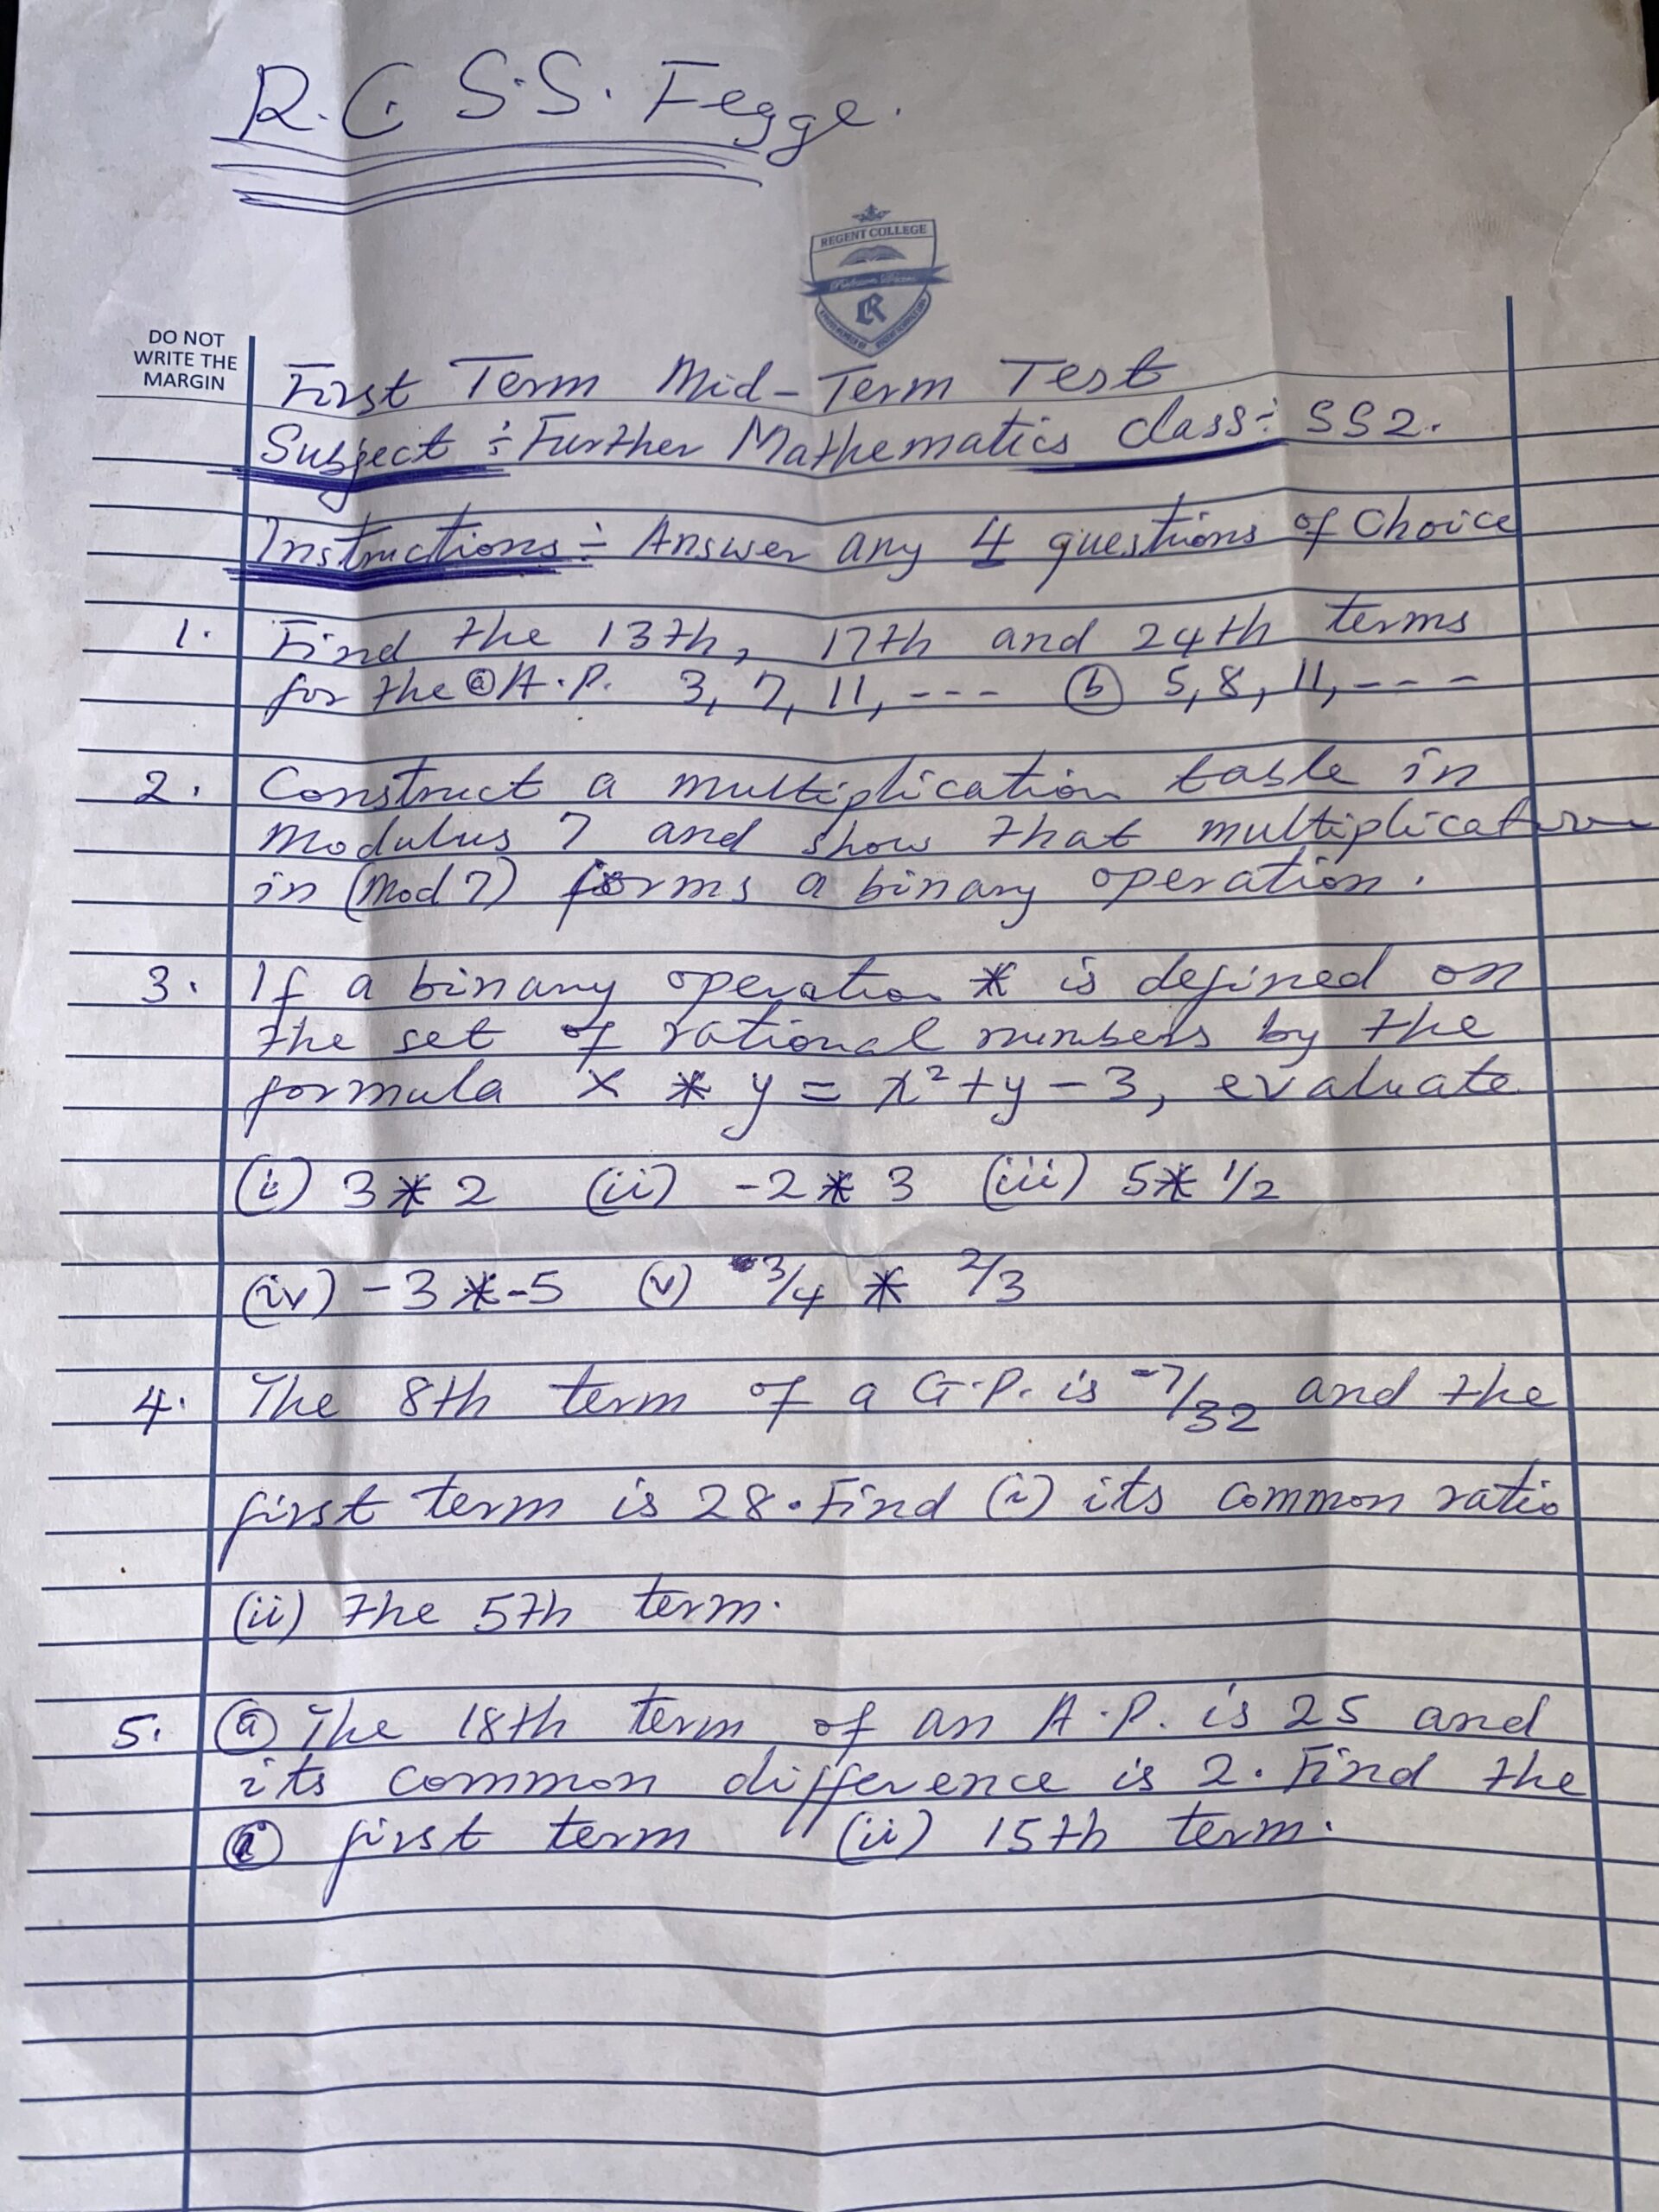 R.C. S.S. Fegge.
REGENT COLLEGE
R
DO NOT
WRITE THE
MARGIN
First Term Mid-Term Test
Subject:- Further Mathematics class:- SS2.
Instructions:- Answer any 4 questions of Choice
1. Find the 13th, 17th and 24th terms
for the (a) A.P. 3, 7, 11, --- (b) 5, 8, 11, ---
2. Construct a multiplication table in
Modulus 7 and show that multiplication
in (Mod 7) forms a binary operation.
3. If a binary operation * is defined on
the set of rational numbers by the
formula x * y = x² + y - 3, evaluate
(i) 3 * 2 (ii) -2 * 3 (iii) 5 * 1/2
(iv) -3 * -5 (v) 3/4 * 2/3
4. The 8th term of a G.P. is -7/32 and the
first term is 28. Find (i) its common ratio
(ii) the 5th term.
5. (a) The 18th term of an A.P. is 25 and
its common difference is 2. Find the
(i) first term (ii) 15th term.